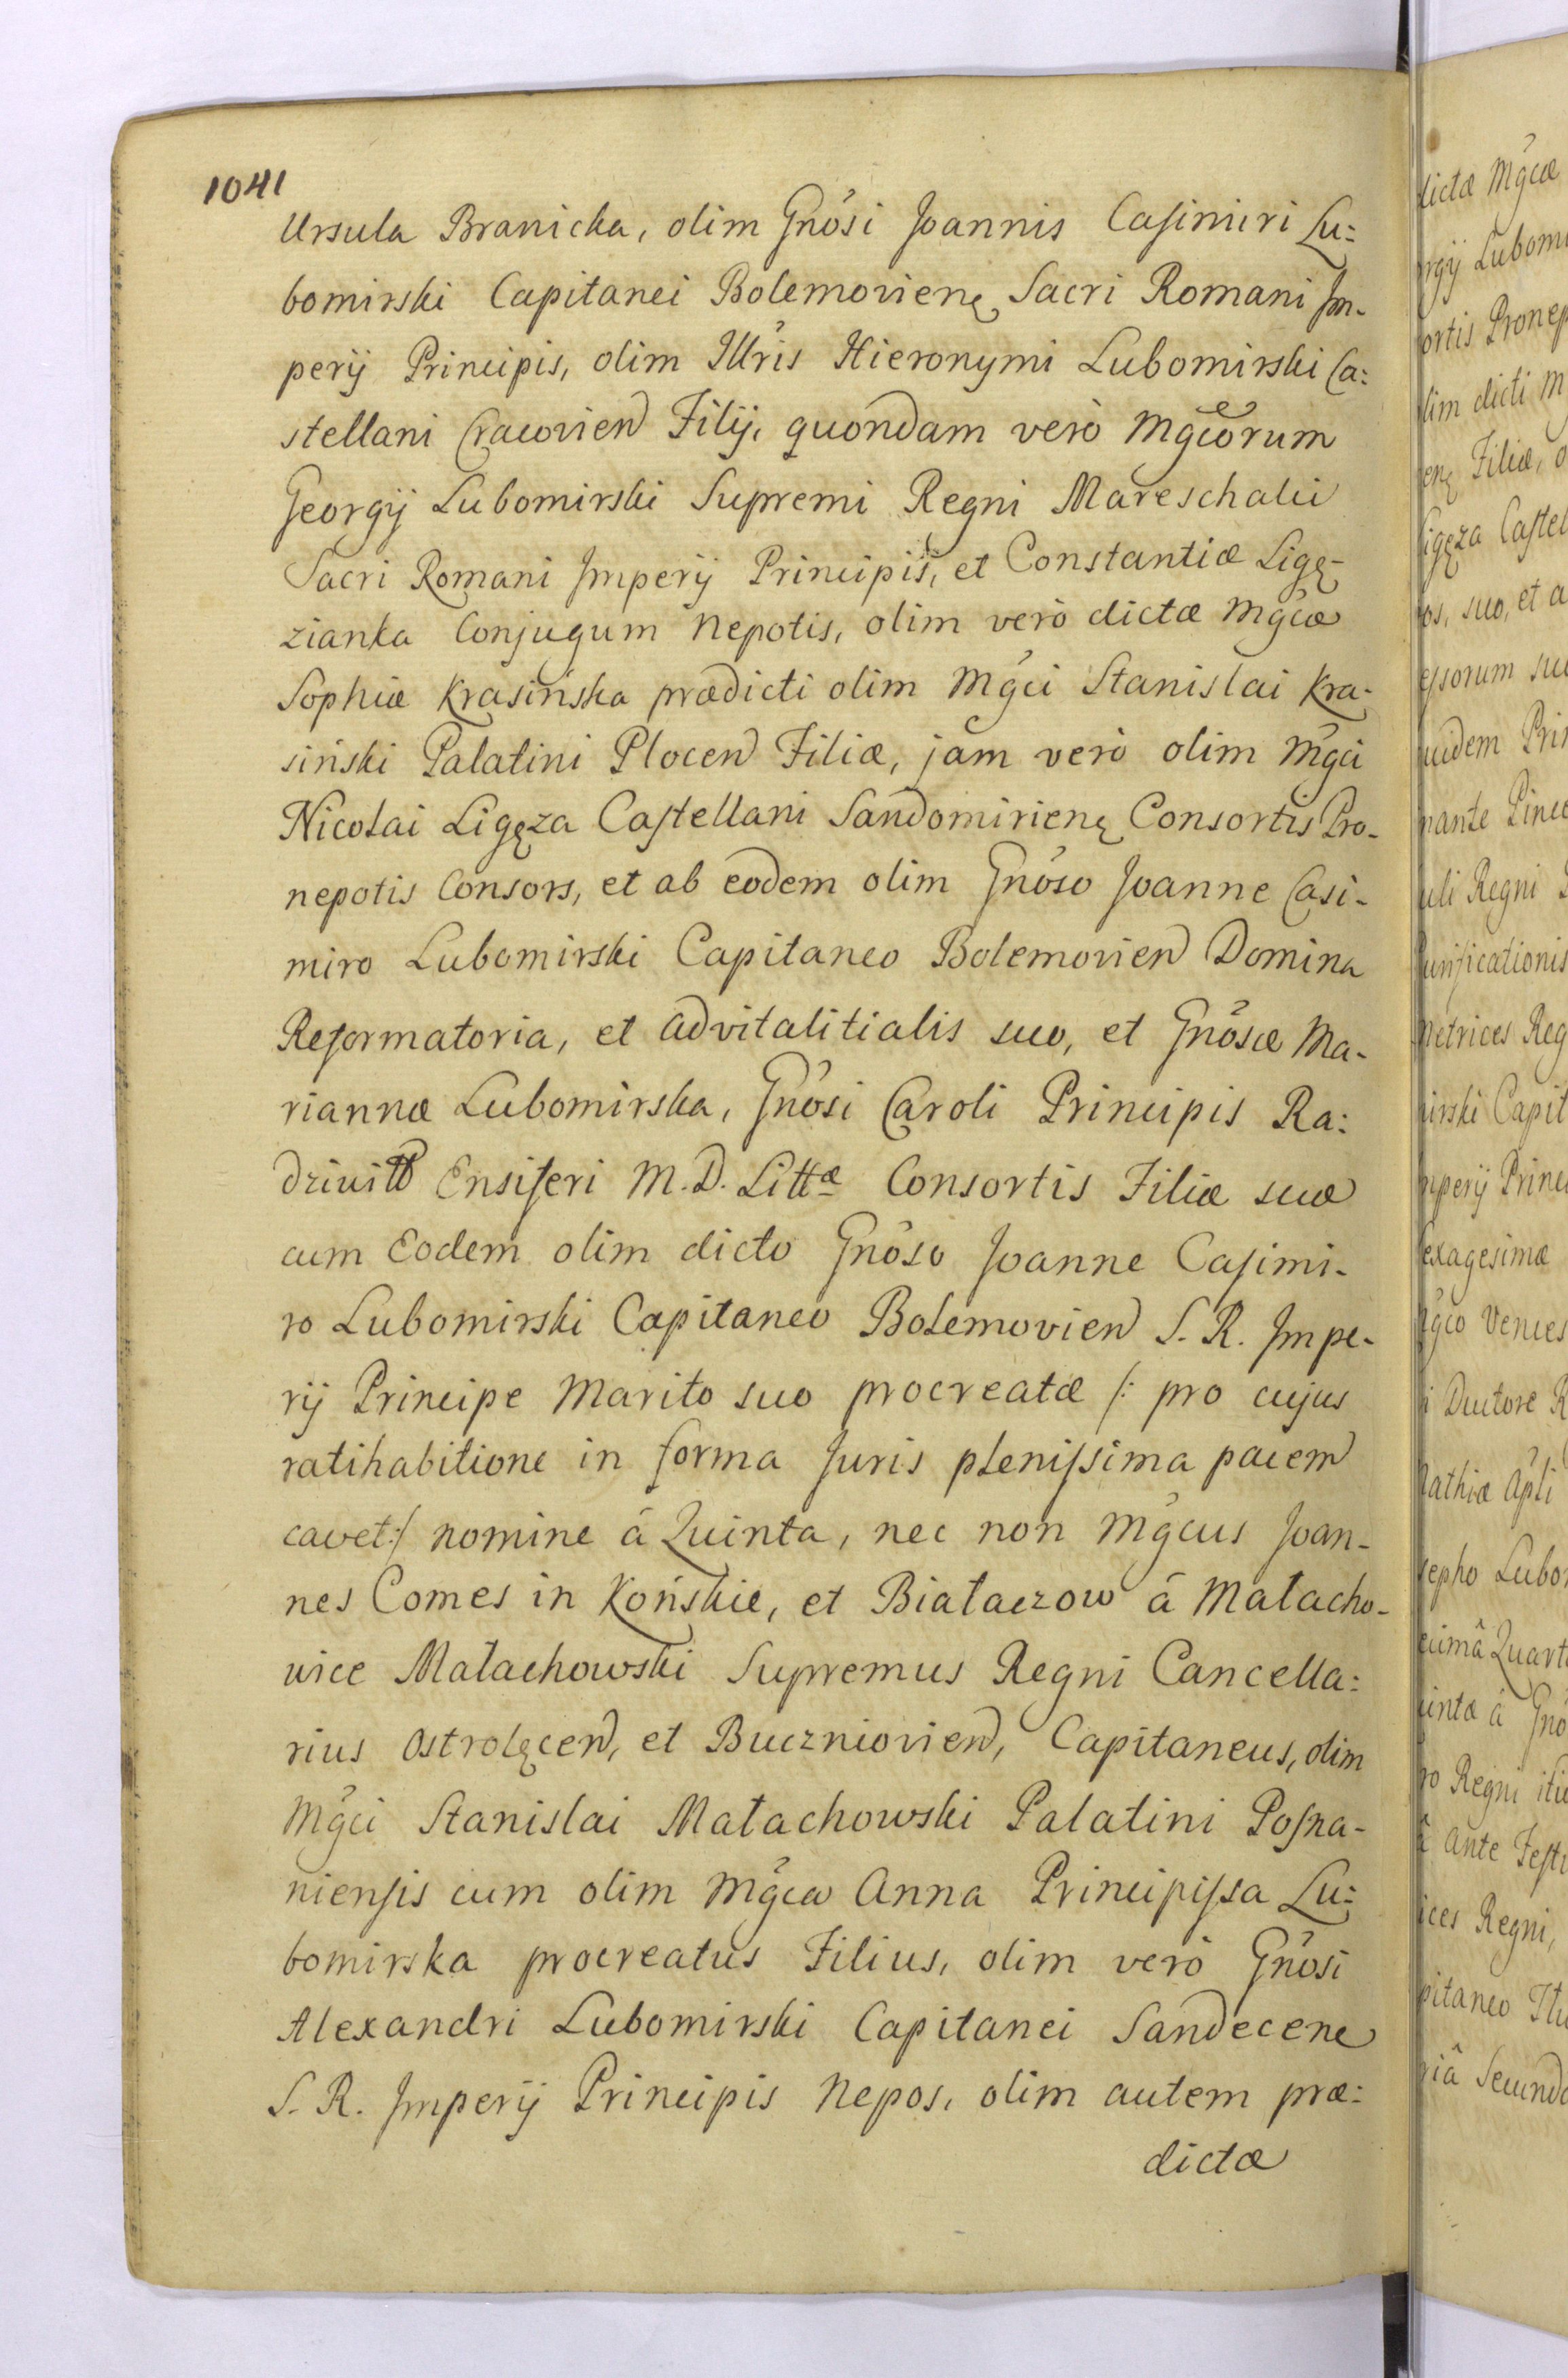 1041
Ursula Branicka, olim Gnősi Joannis Casimiri Lu:
bomirski Capitanei Bolemovienę Sacri Romani Im-
perij Principis, olim Illr̃is Hieronymi Lubomirski Ca:
stellani Cracovien Filij, quondam verò Mgcorum
Georgij Lubomirski Supremi Regni Mareschalci
Sacri Romani Imperij Principis, et Constantiæ Ligę-
zianka Conjugum Nepotis, olim verò dictæ Mgcæ
Sophiæ Krasińska prædicti olim Mgci Stanislai Kra-
siński Palatini Plocen Filiæ, jam verò olim Mgci
Nicolai Ligęza Castellani Sandomirienę Consortis Pro-
nepotis Consors, et ab eodem olim Gnőso Joanne Casi-
miro Lubomirski Capitaneo Bolemovien Domina
Reformatoria, et advitalitialis suo, et Gnősæ Ma-
riannæ Lubomirska, Gnősi Caroli Principis Ra:
dziwiłł Ensiferi M. D. Littæ Consortis Filiæ suæ
cum Eodem olim dicto Gnőso Joanne Casimi-
ro Lubomirski Capitaneo Bolemovien S. R. Impe-
rij Principe Marito suo procreatæ /: pro cujus
ratihabitione in forma Juris plenissima pacem
cavet:/ nomine â Quinta, nec non Mgcus Joan-
nes Comes in Końskie, et Białaczow â Małacho-
wice Małachowski Supremus Regni Cancella:
rius Ostrolęcen, et Buczniovien, Capitaneus, olim
Mgci Stanislai Małachowski Palatini Posna-
niensis cum olim Mgca Anna Principissa Lu:
bomirska procreatus Filius, olim verò Gnősi
Alexandri Lubomirski Capitanei Sandecene
S. R. Imperij Principis Nepos, olim autem præ:
dictæ
dictæ Mgcæ
Lubomi
ortis Pronep
olim dicti M
Filiæ, o
Ligęza Castel
suo, et a
essorum su
uidem Prin
uli Regni
Purificationis
Metrices Reg
mirski Capit
mperij Princ
exagesimæ
Mgco Vences
Ductore R
Mathiæ Apli
sepho Lubo
cimâ Quart
intæ â Gno
ro Regni
ante Festu
ices Regni,
pitaneo
riâ Secund